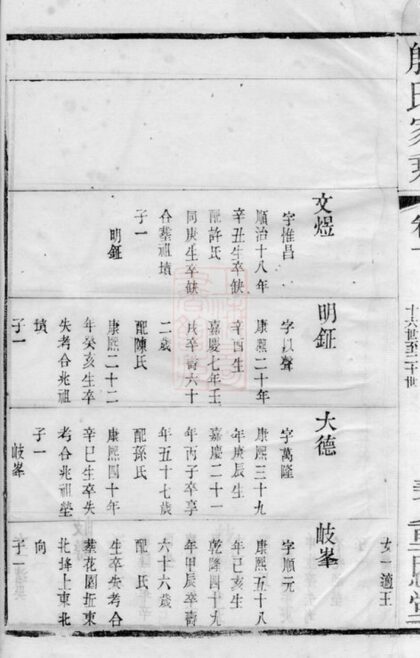 十六世至二十世
女一適王
文煜
字惟昌
順治十八年
辛丑生卒缺
配許氏
同庚生卒缺
合葬祖墳
子一
明鉦
明鉦
字以聲
康熙二十年
辛酉生
嘉慶七年壬
戌卒壽六十
二歲
配陳氏
康熙二十二
年癸亥生卒
失考合兆祖
墳
子一
大德
字萬隆
康熙三十九
年庚辰生
嘉慶二十一
年丙子卒享
年五十七歲
配孫氏
康熙四十年
辛巳生卒失
考合兆祖塋
子一
岐峯
岐峯
字順元
康熙五十八
年己亥生
乾隆四十九
年甲辰卒壽
六十六歲
配 氏
生卒失考合
葬花園 東
北 上東北
向
子一